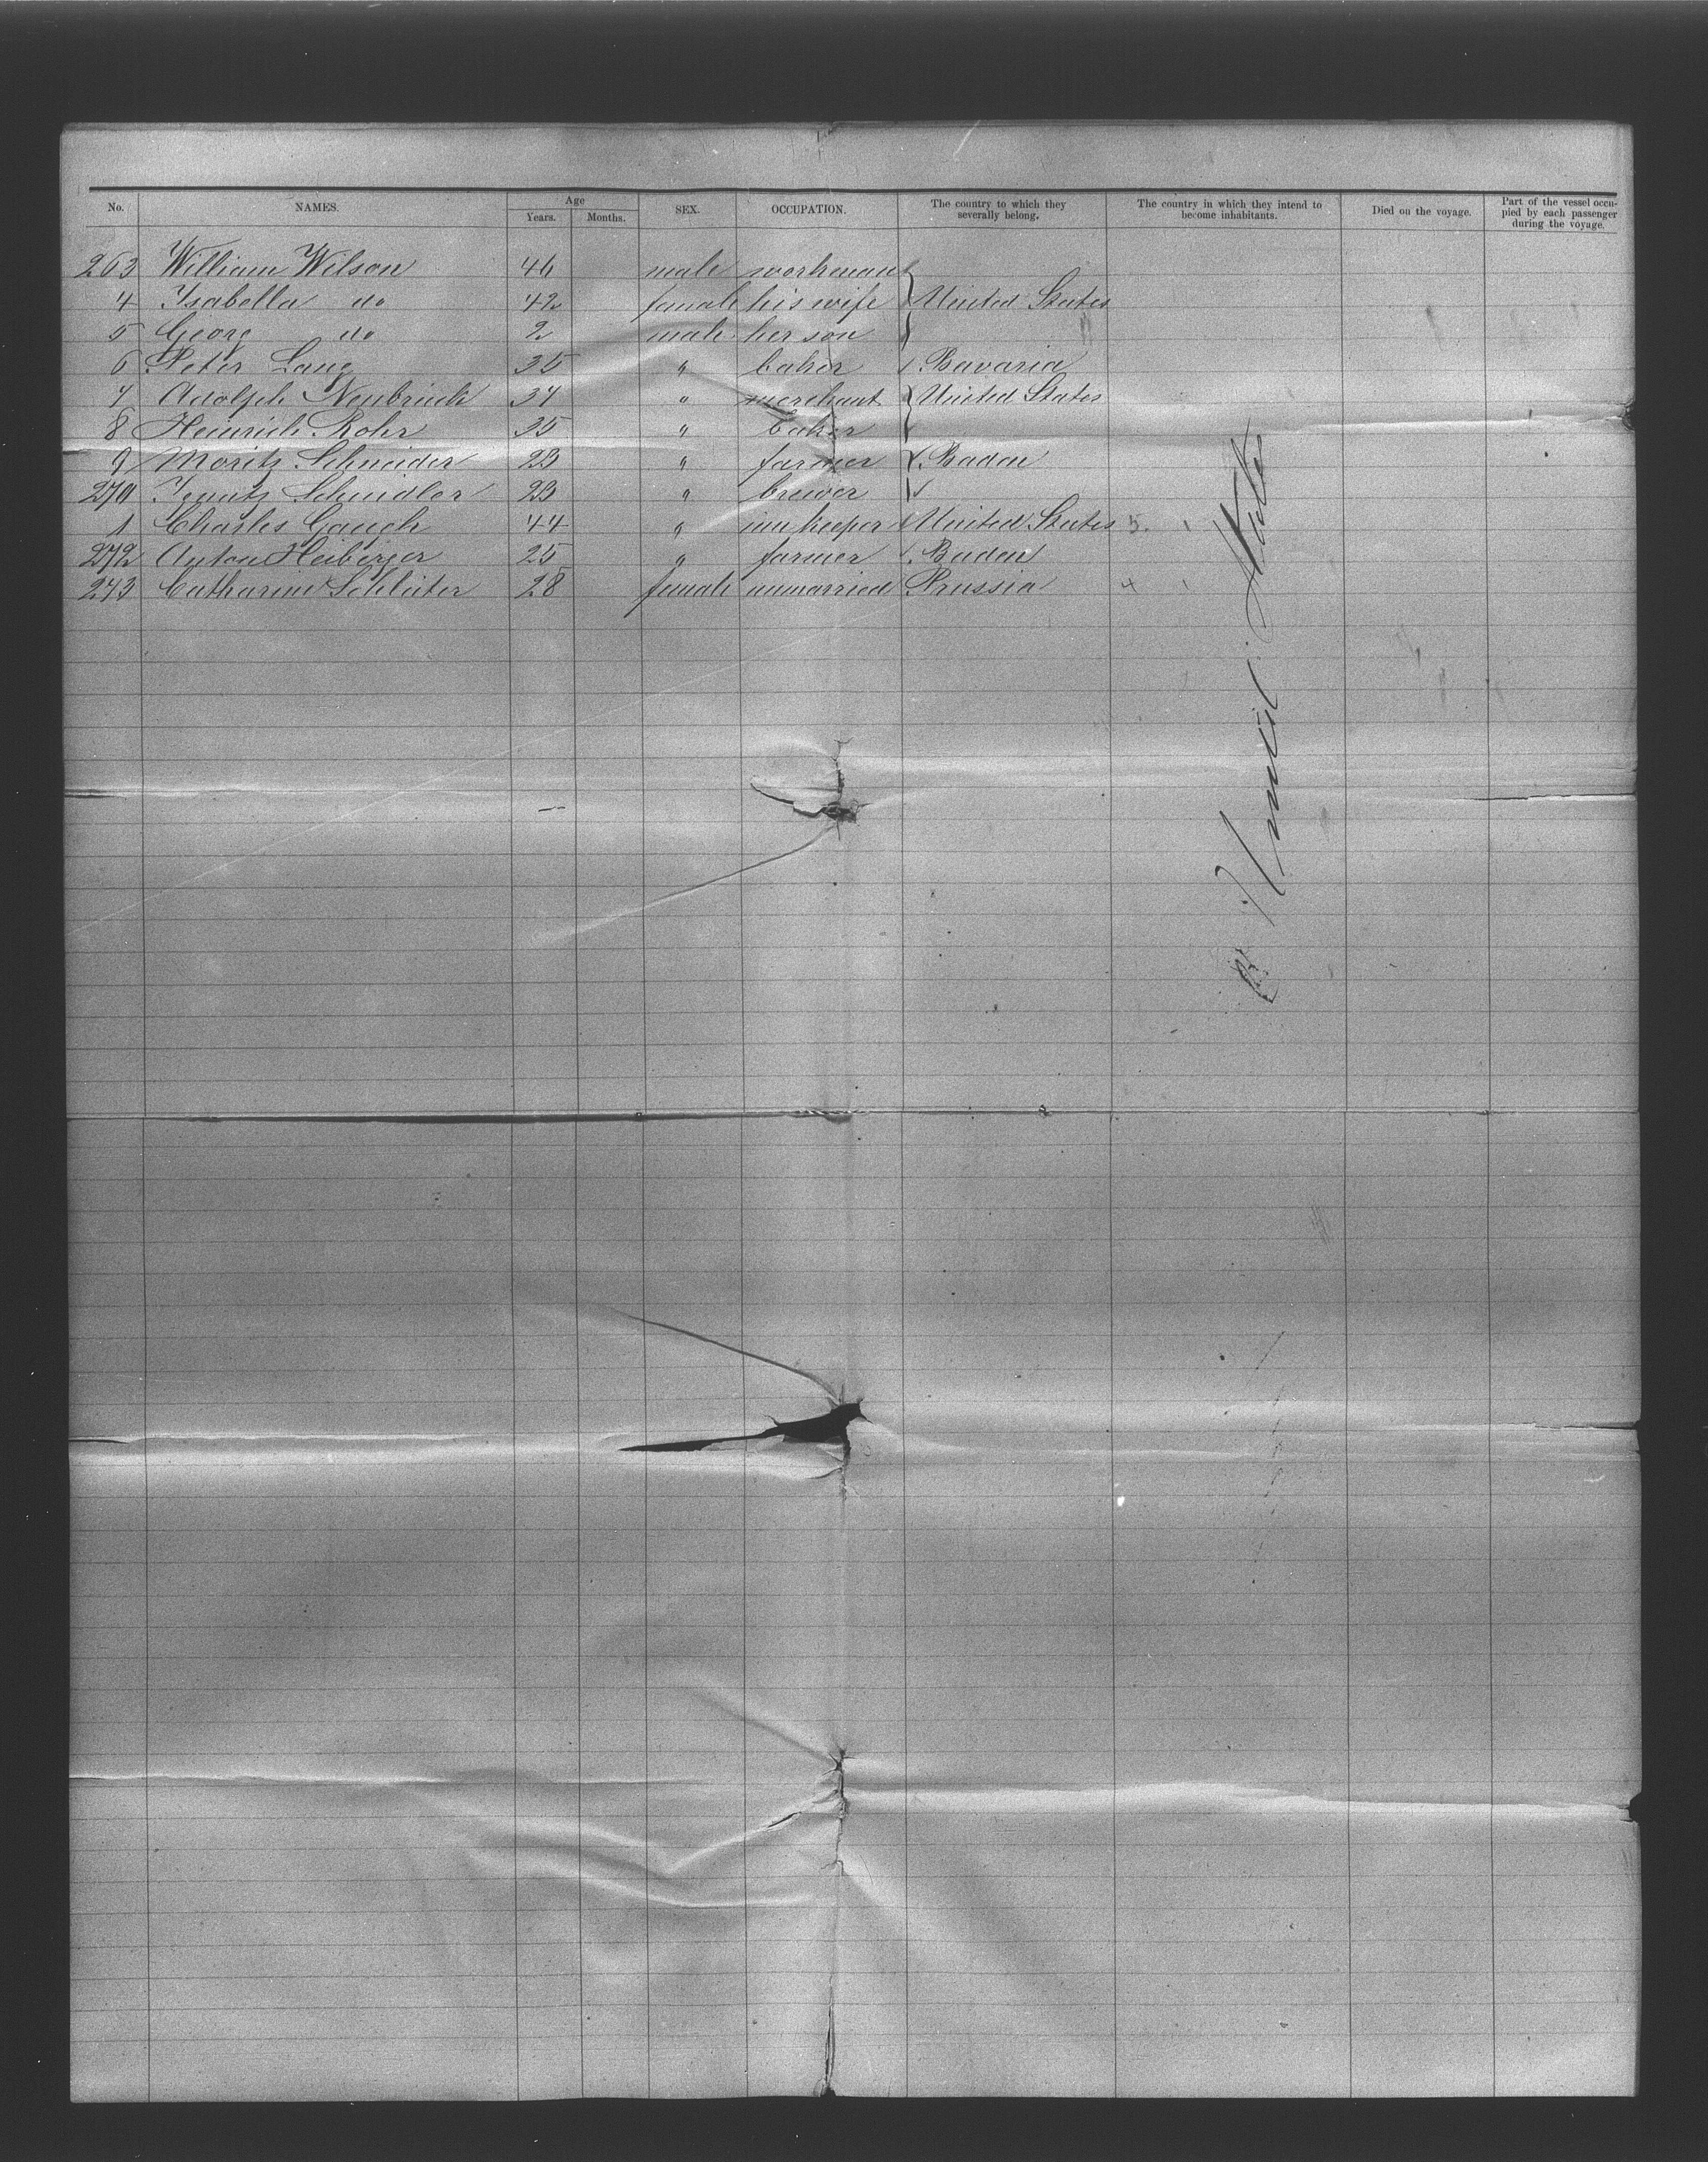 No. NAMES. Age Years. Months. SEX. OCCUPATION. The country to which they severally belong. The country in which they intend to become inhabitants. Died on the voyage. Part of the vessel occupied by each passenger during the voyage.
263 William Wilson 46 male workman
4 Isabella do 42 female his wife United States
5 Georg do 2 male her son
6 Peter Lang 35 " baker Bavaria
7 Adolph Neubrick 34 " merchant United States
8 Heinrich Rohr 35 " baker
9 Moritz Schneider 23 " farmer Baden
270 Ignatz Schindler 23 " brewer
1 Charles Gaugh 44 " innkeeper United States 5.
272 Anton Heiberger 25 " farmer Baden
273 Catharine Schleiter 28 female unmarried Prussia 4
United States